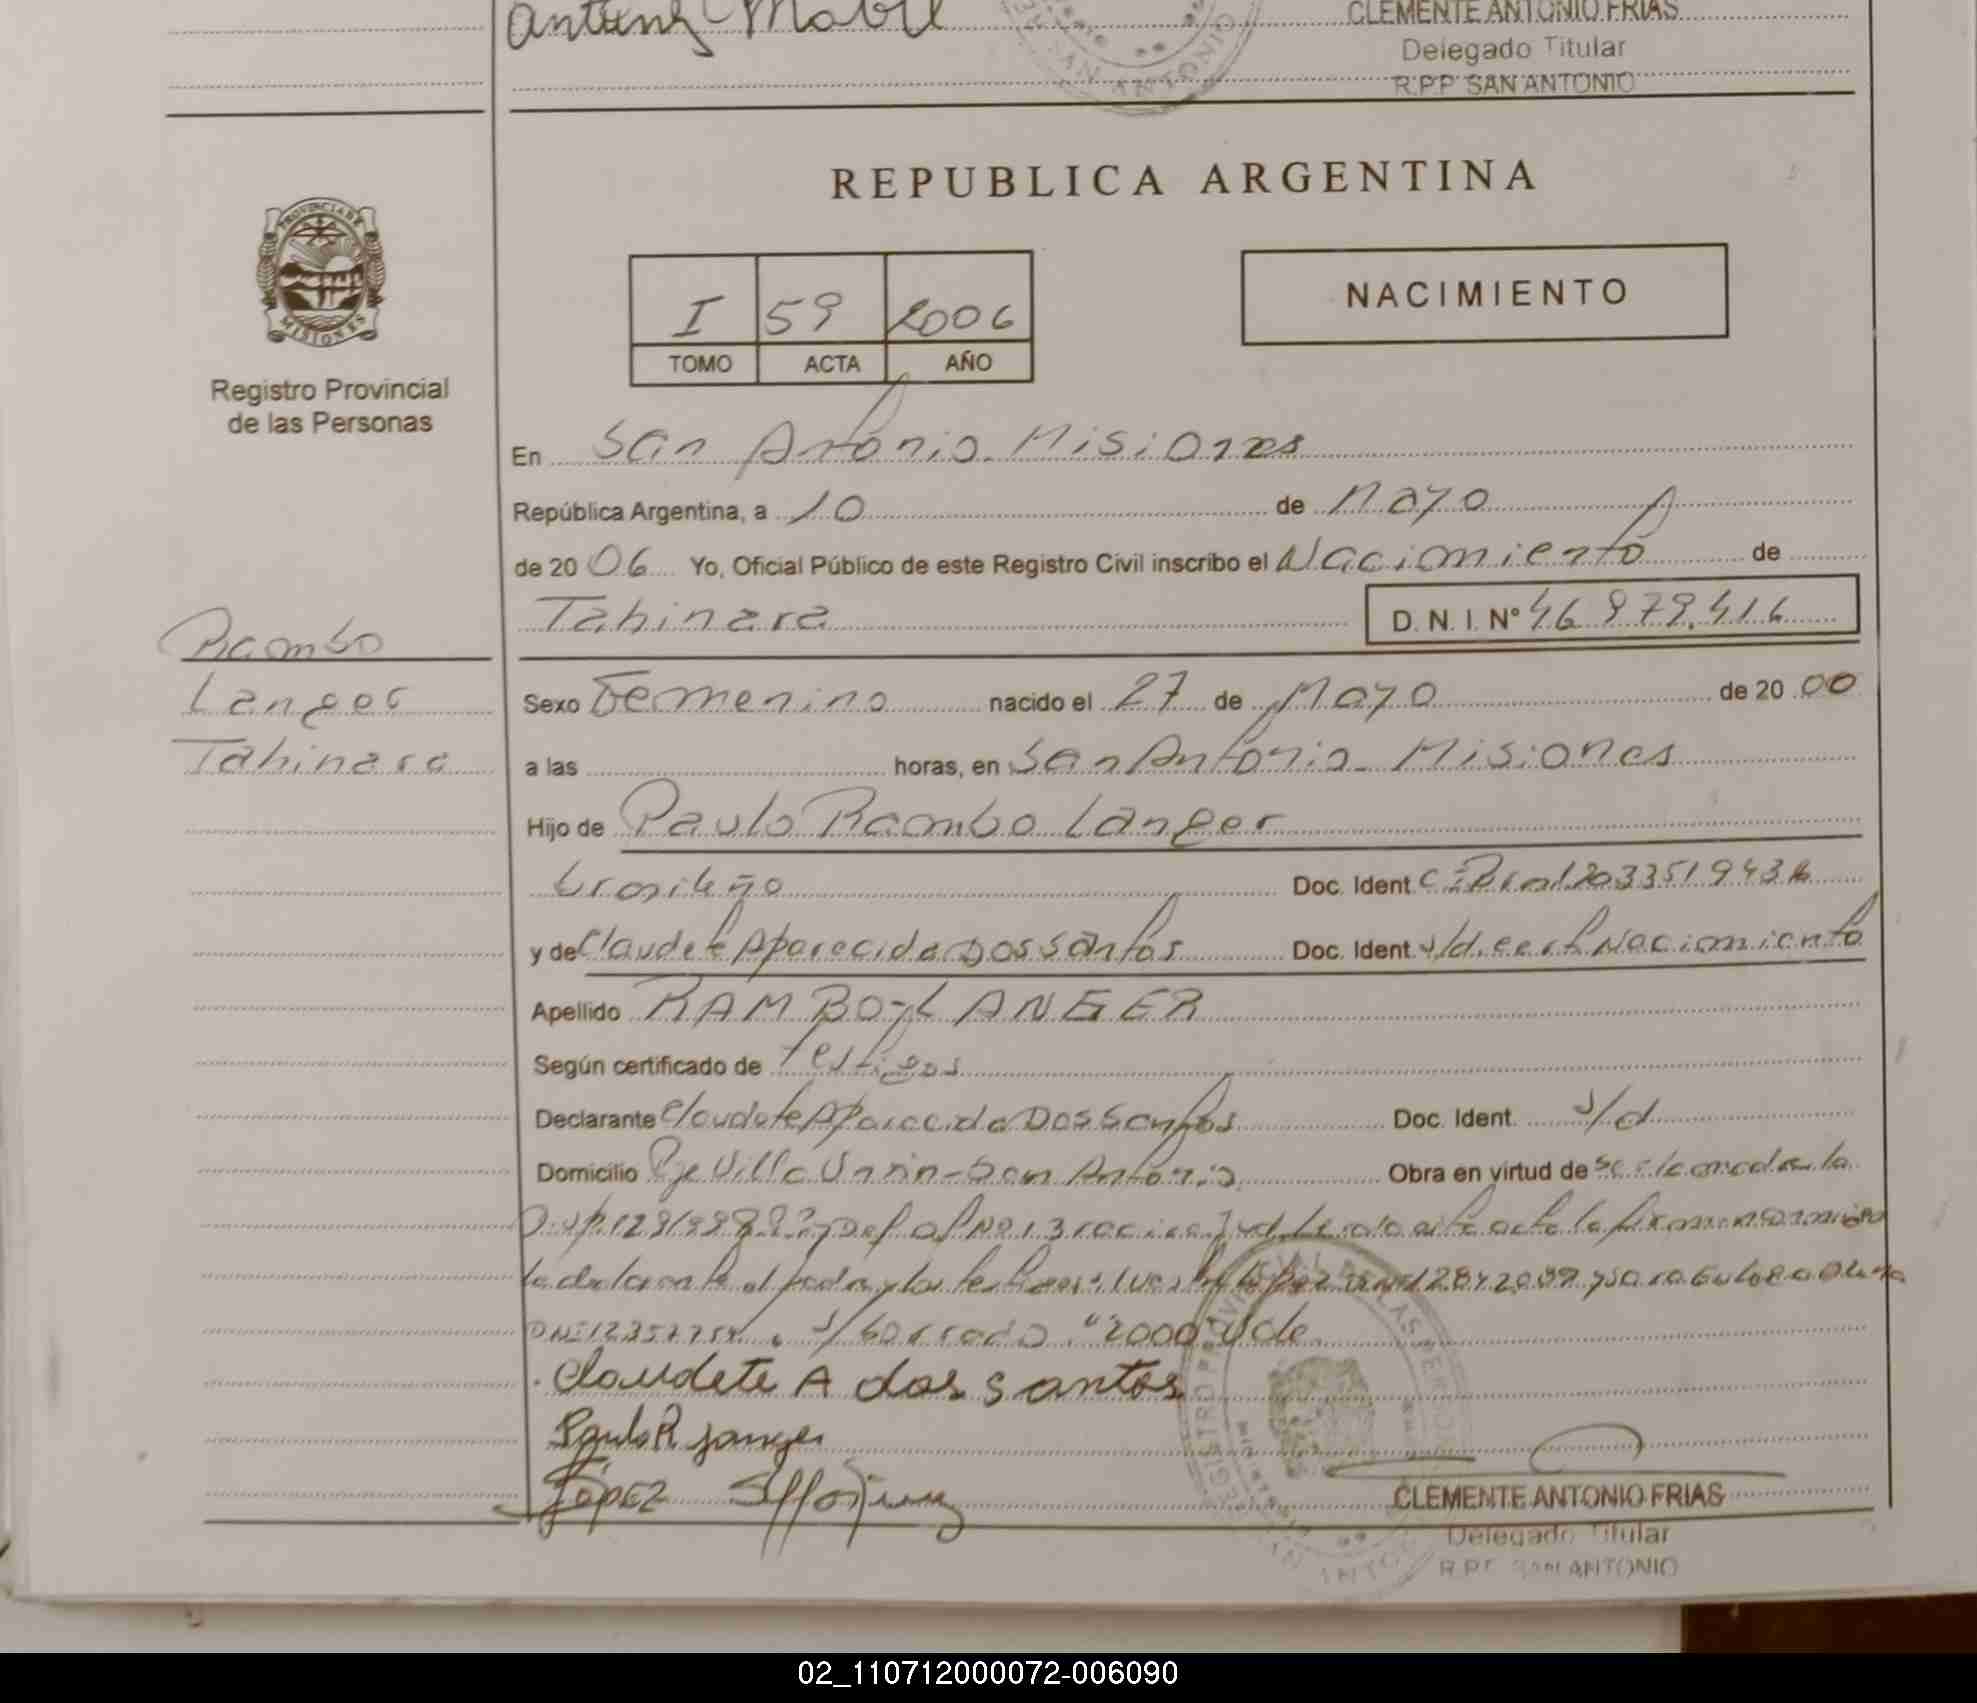 CLEMENTE ANTONIO FRIAS
Delegado Titular
R.P.P SAN ANTONIO
SAN ANTONIO
REPUBLICA ARGENTINA
PROVINCIA DE
MISIONES
Registro Provincial
de las Personas
I 59 2006
TOMO ACTA AÑO
NACIMIENTO
En San Antonio Misiones
República Argentina, a 10 de Mayo
de 2006 Yo, Oficial Público de este Registro Civil inscribo el Nacimiento de
Tahinara D. N. I. Nº 46 979.416
Rambo
Langer
Tahinara
Sexo Femenino nacido el 27 de Mayo de 2000
a las horas, en San Antonio Misiones
Hijo de Paulo Rambo Langer
brasileño Doc. Ident
y de Claudete Aparecida Dos Santos Doc. Ident. Nacimiento
Apellido RAMBO-LANGER
Según certificado de testigos
Declarante Claudete Aparecida Dos Santos Doc. Ident. s/d
Domicilio Pje Villa Unión-San Antonio Obra en virtud de
la declarante el padre y los testigos
s/borrado "2000" Vale
Claudete A dos santos
Paulo R Langer
López
CLEMENTE ANTONIO FRIAS
Delegado Titular
SAN ANTONIO
02_110712000072-006090